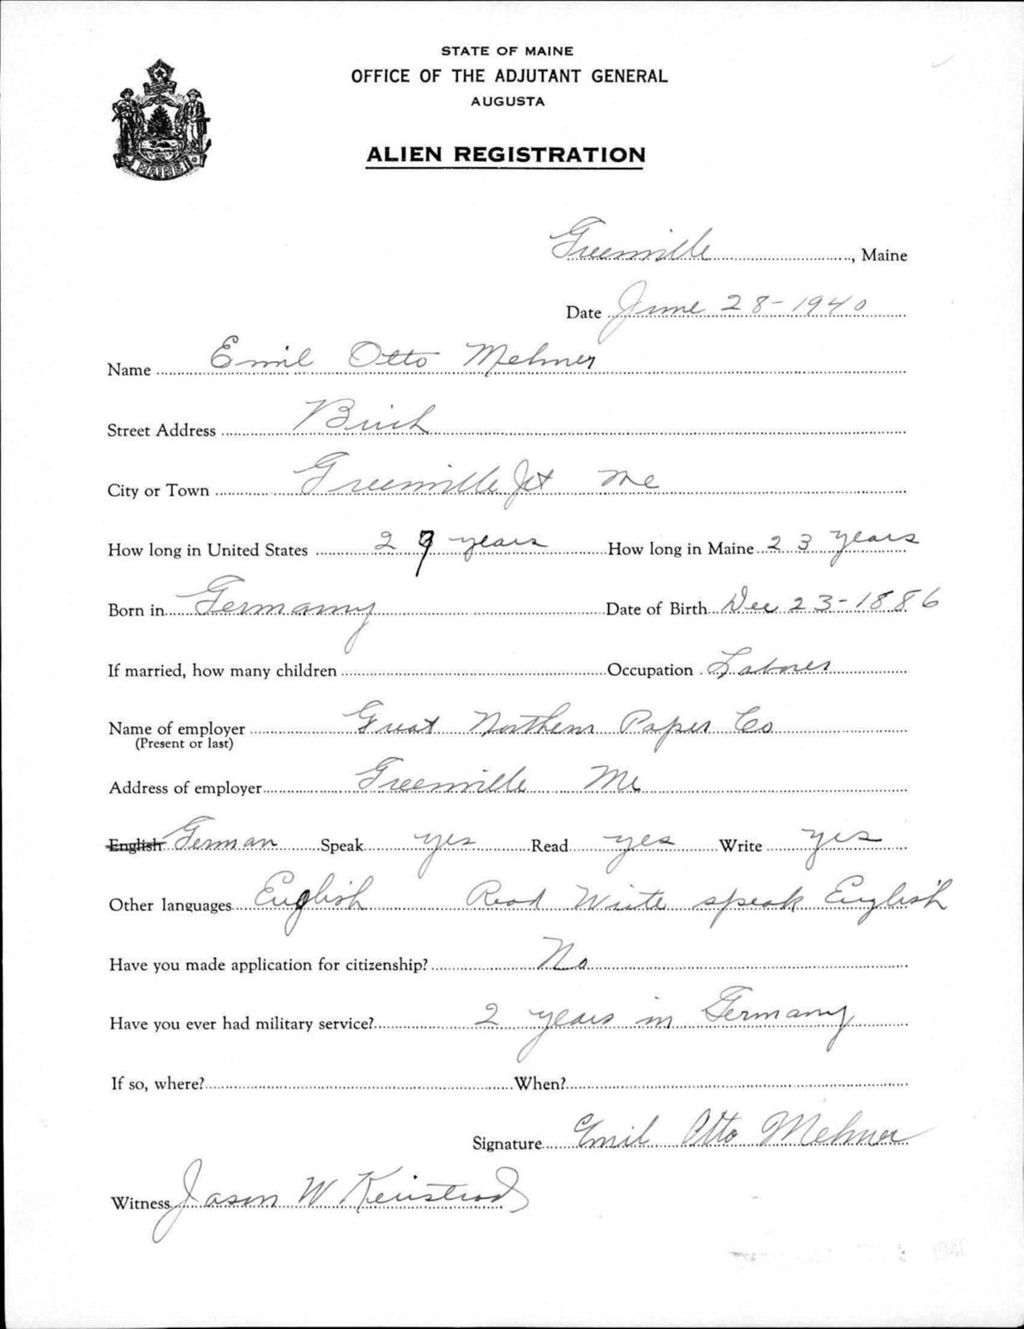 STATE OF MAINE
OFFICE OF THE ADJUTANT GENERAL
AUGUSTA
ALIEN REGISTRATION
MAINE
Greenville, Maine
Date June 28-1940
Name Emil Otto Mehner
Street Address Birch
City or Town Greenville Jct Me
How long in United States 29 years How long in Maine 23 years
Born in Germany Date of Birth Dec 23-1886
If married, how many children Occupation Laborer
Name of employer Great Northern Paper Co
(Present or last)
Address of employer Greenville Me
English German Speak yes Read yes Write yes
Other languages English Read Write speak English
Have you made application for citizenship? No
Have you ever had military service? 2 years in Germany
If so, where? When?
Signature Emil Otto Mehner
Witness Jason W